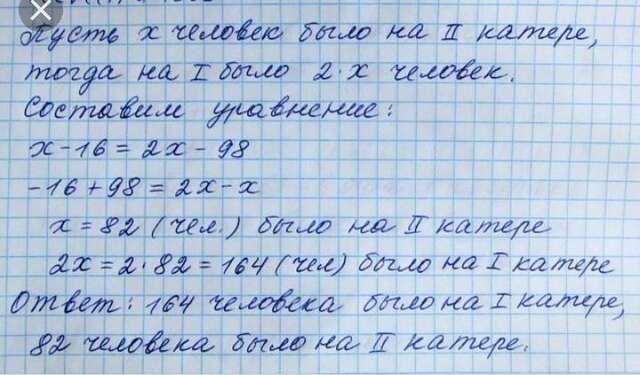 Пусть x человек было на II катере,
тогда на I было 2·x человек.
Составим уравнение:
x - 16 = 2x - 98
-16 + 98 = 2x - x
x = 82 (чел.) было на II катере
2x = 2·82 = 164 (чел) было на I катере
Ответ: 164 человека было на I катере,
82 человека было на II катере.